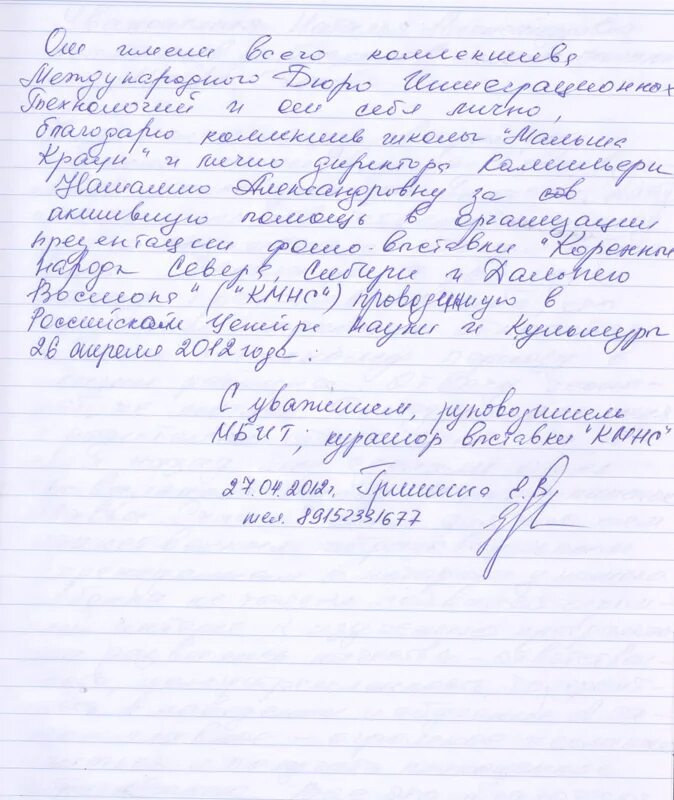 От имени всего коллектива
Международного Бюро Интеграционных
Технологий и от себя лично,
благодарю коллектив школы "Малыша
Крауи" и лично директора
Наталию Александровну за
активную помощь в организации
презентации фото-выставки "Коренные
народы Севера, Сибири и Дальнего
Востока" ("КМНС") проводимую в
Российском Центре науки и Культуры
26 апреля 2012 года.
С уважением, руководитель
МБИТ, куратор выставки "КМНС"
27.04.2012г. Гришина Е.В.
тел. 89152331677